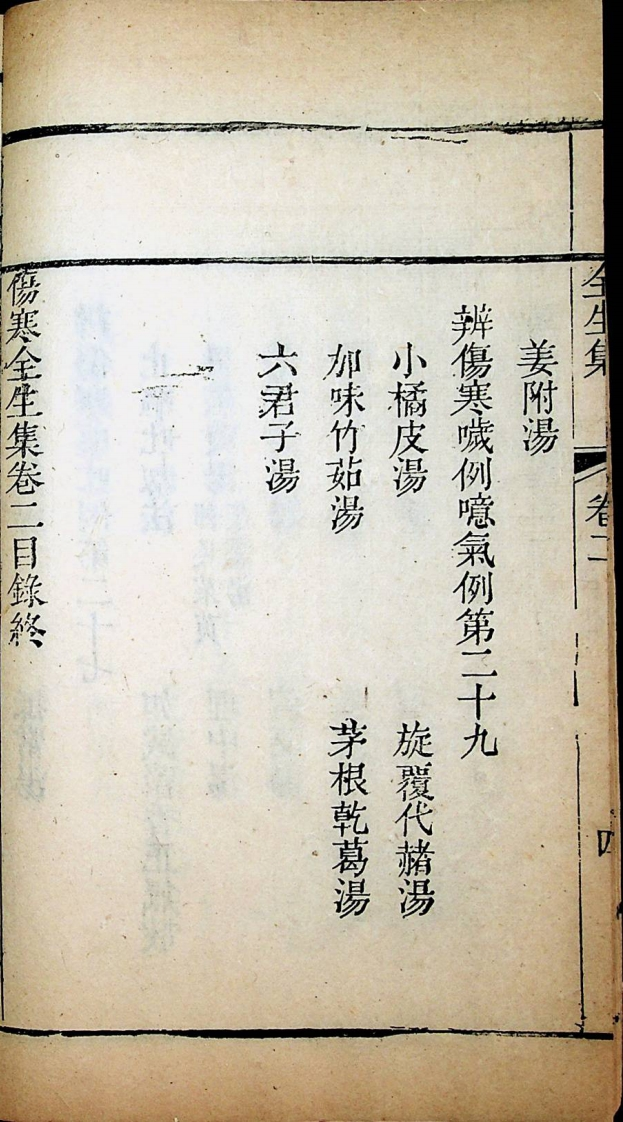 全生集 卷二 四
姜附湯
辨傷寒噦例噫氣例第二十九
小橘皮湯 旋覆代赭湯
加味竹茹湯 茅根乾葛湯
六君子湯
傷寒全生集卷二目錄終